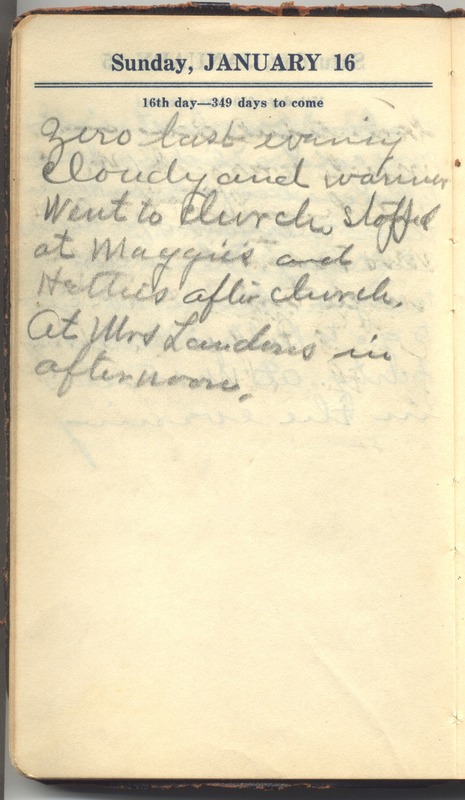 Sunday, JANUARY 16
16th day—349 days to come
Zero last evening
Cloudy and warmer
Went to church, stopped
at Maggies and
Hatties after church.
At Mrs Landens in
afternoon.